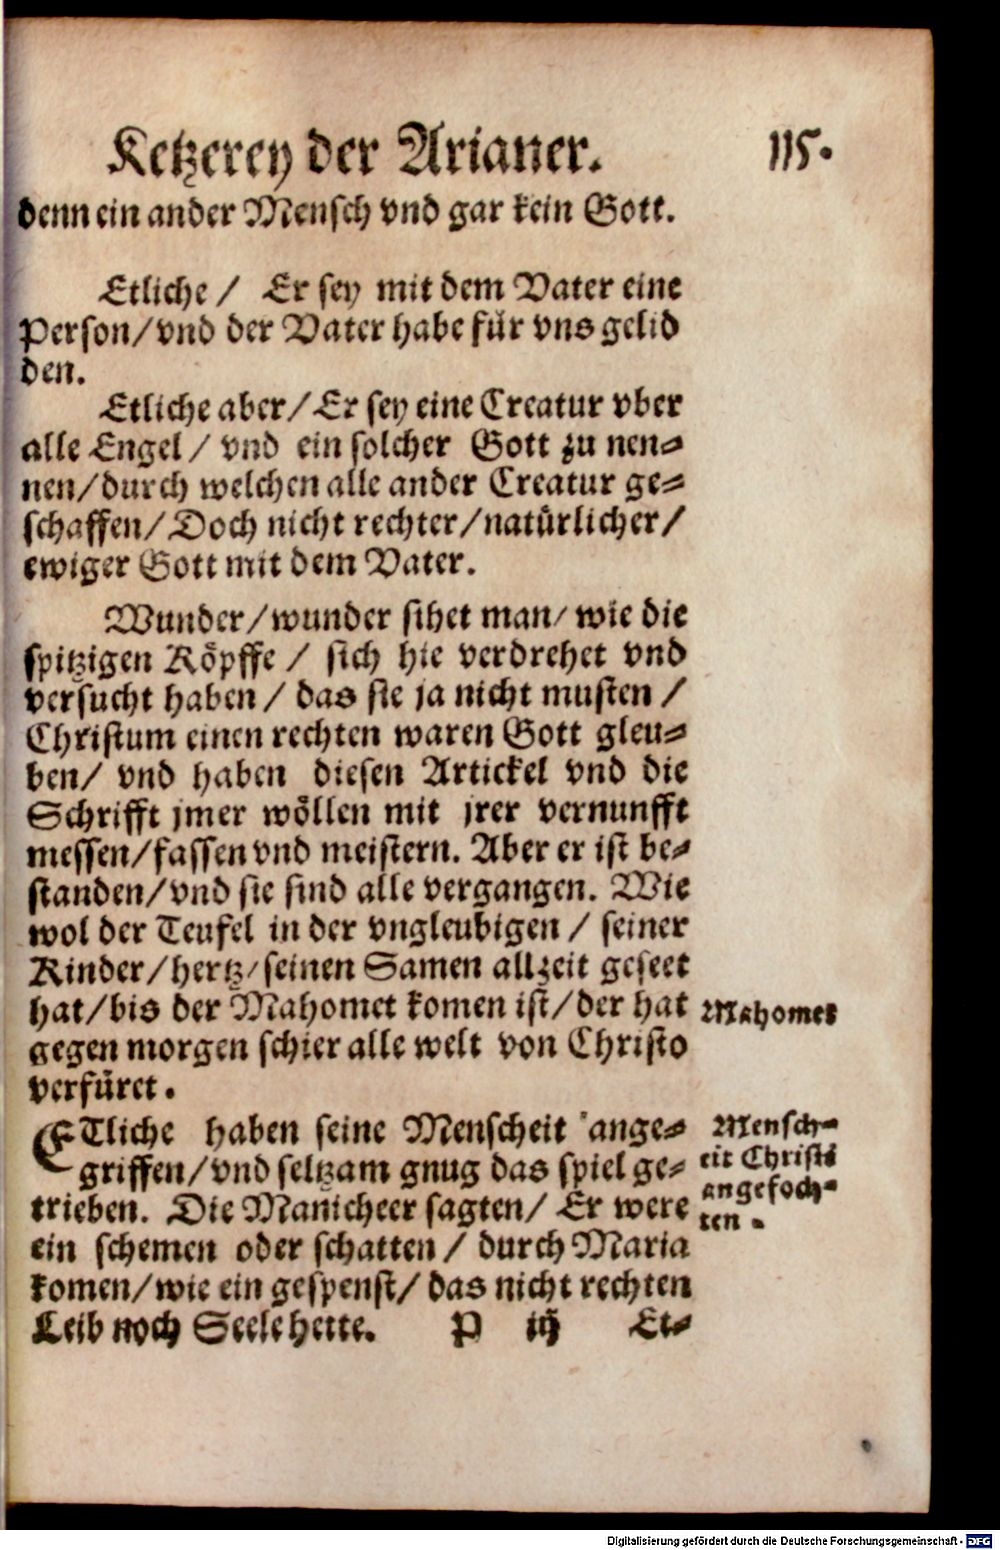 Ketzerey der Arianer. 115.
denn ein ander Mensch vnd gar kein Gott.
Etliche / Er sey mit dem Vater eine
Person/vnd der Vater habe für vns gelid
den.
Etliche aber/Er sey eine Creatur vber
alle Engel / vnd ein solcher Gott zu nen-
nen/durch welchen alle ander Creatur ge-
schaffen/Doch nicht rechter/natürlicher/
ewiger Gott mit dem Vater.
Wunder/wunder sihet man/ wie die
spitzigen Köpffe / sich hie verdrehet vnd
versucht haben / das sie ja nicht musten /
Christum einen rechten waren Gott gleu-
ben/ vnd haben diesen Artickel vnd die
Schrifft jmer wöllen mit jrer vernunfft
messen/fassen vnd meistern. Aber er ist be-
standen/vnd sie sind alle vergangen. Wie
wol der Teufel in der vngleubigen / seiner
Kinder/hertz/seinen Samen allzeit geseet
hat/bis der Mahomet komen ist/der hat
gegen morgen schier alle welt von Christo
verfüret.
Mahomet
ETliche haben seine Menscheit ange-
griffen/vnd seltzam gnug das spiel ge-
trieben. Die Manicheer sagten/ Er were
ein schemen oder schatten / durch Maria
komen/wie ein gespenst/das nicht rechten
Leib noch Seele hette. P iij Et-
Mensch-
eit Christi
angefoch-
ten.
Digitalisierung gefördert durch die Deutsche Forschungsgemeinschaft - DFG